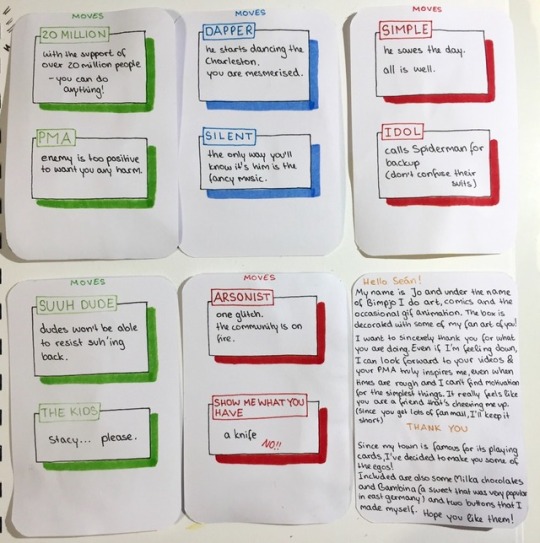 MOVES
20 MILLION
with the support of
over 20 million people
- you can do
anything!
PMA
enemy is too positive
to want you any harm.
MOVES
DAPPER
he starts dancing the
Charleston.
you are mesmerised.
SILENT
the only way you'll
know it's him is the
fancy music.
MOVES
SIMPLE
he saves the day.
all is well.
IDOL
calls Spiderman for
backup
(don't confuse their
suits)
MOVES
SUUH DUDE
dudes won't be able
to resist suh'ing
back.
THE KIDS
Stacy... please.
MOVES
ARSONIST
one glitch.
the community is on
fire.
SHOW ME WHAT YOU
HAVE
a knife
NO!!
Hello Seán!
My name is Jo and under the name
of Bimpjo I do art, comics and the
occasional gif animation. The box is
decorated with some of my fan art of you!
I want to sincerely thank you for what
you are doing. Even if I'm feeling down,
I can look forward to your videos &
your PMA truly inspires me, even when
times are rough and I can't find motivation
for the simplest things. It really feels like
you are a friend that's cheering me up.
(Since you get lots of fan mail, I'll keep it
short)
THANK YOU
Since my town is famous for its playing
cards, I've decided to make you some of
the egos!
Included are also some Milka chocolates
and Bambina (a sweet that was very popular
in east germany) and two buttons that I
made myself. Hope you like them!